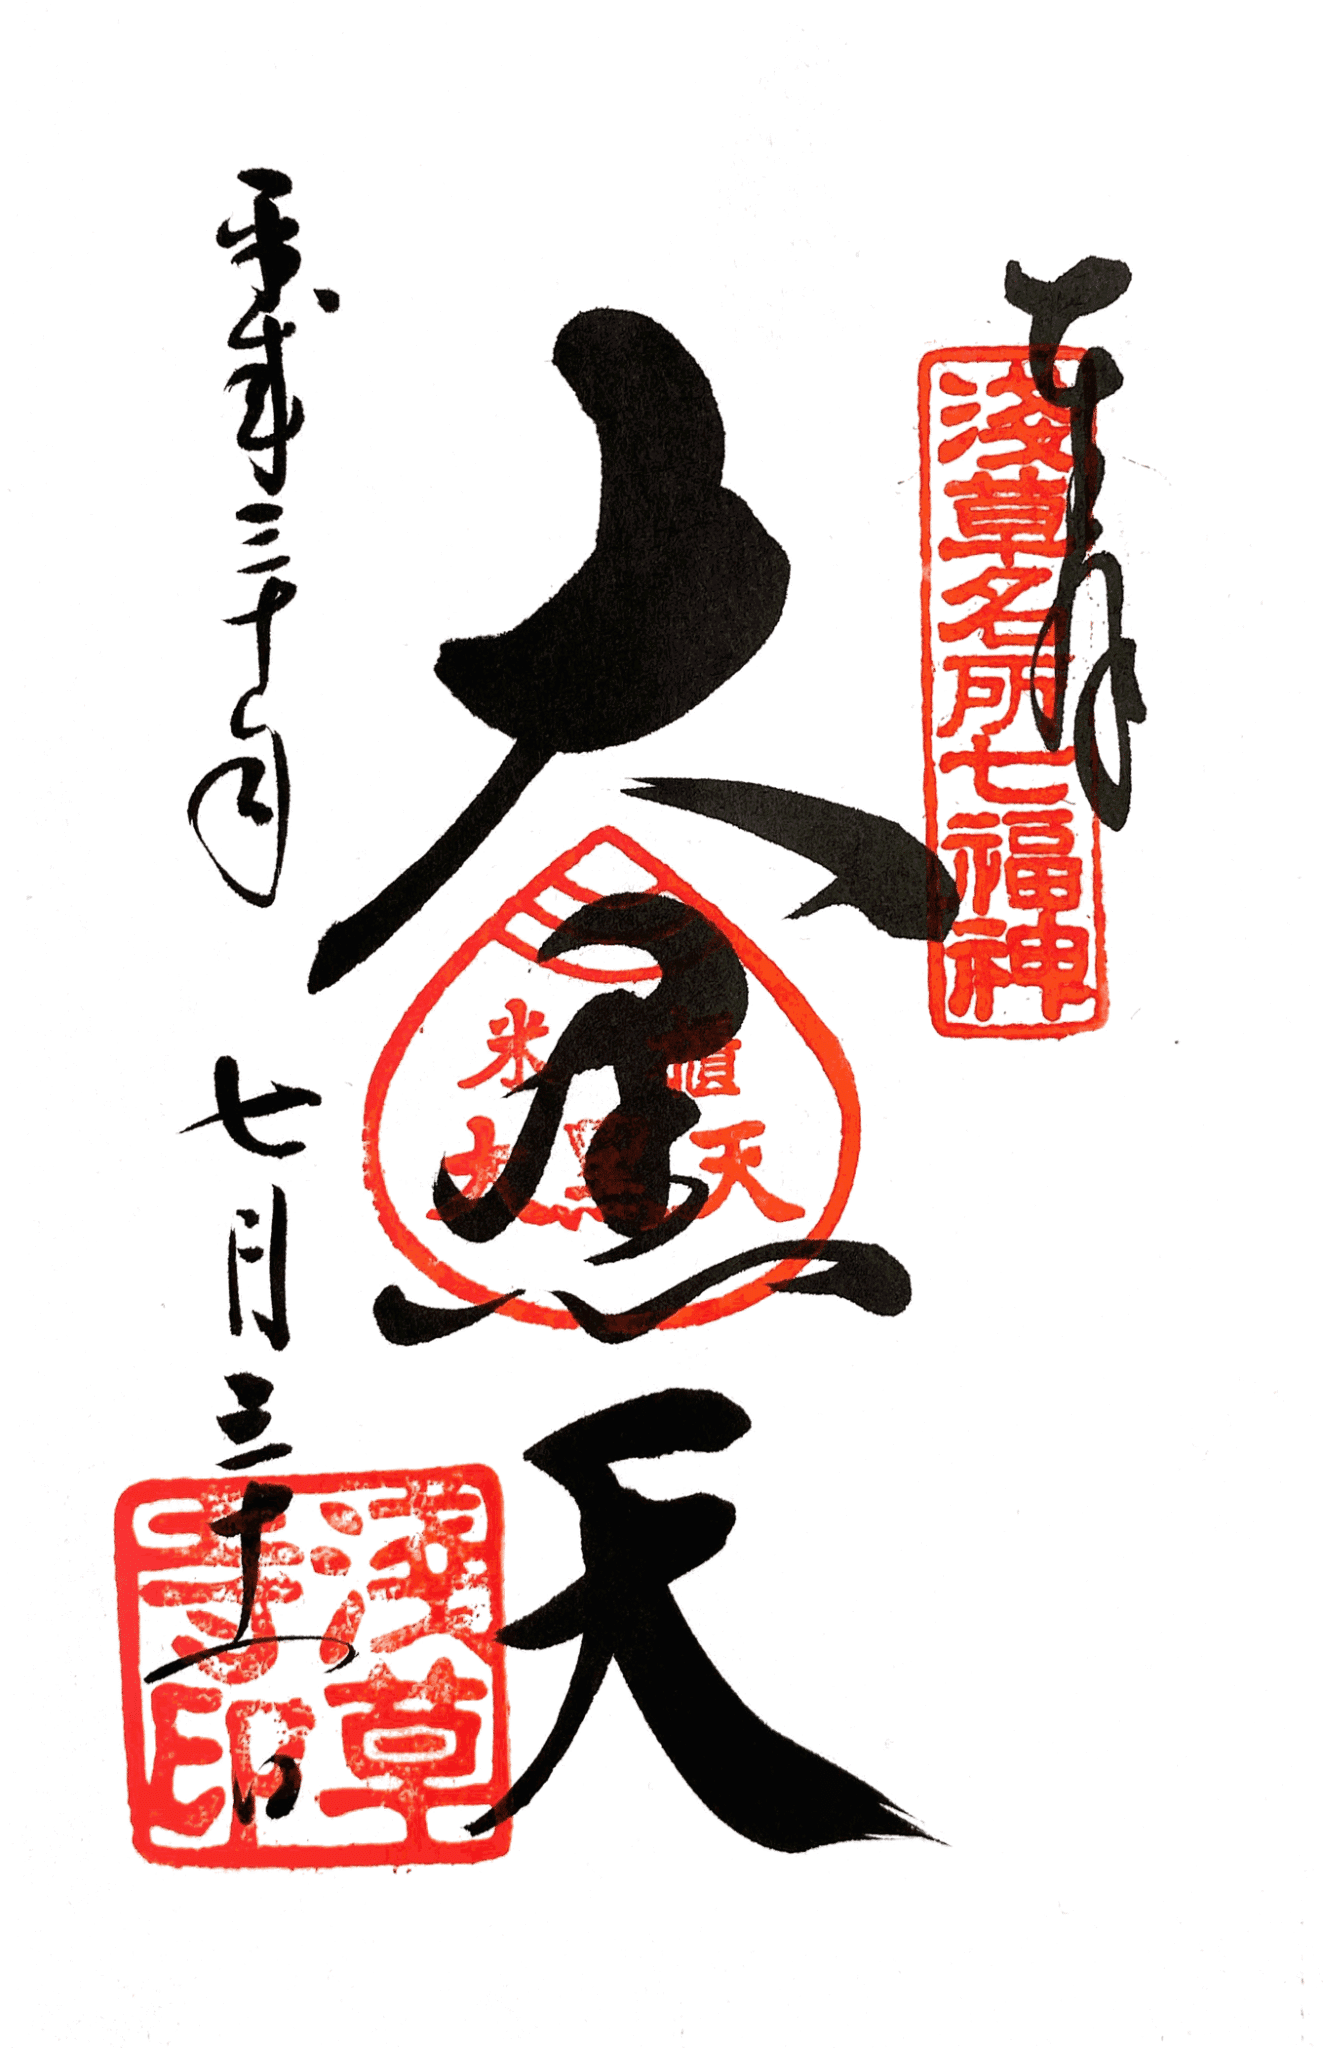 奉拝
浅草名所七福神
大黒天
米櫃
大黒天
平成三十年 七月三十一日
浅草
寺印